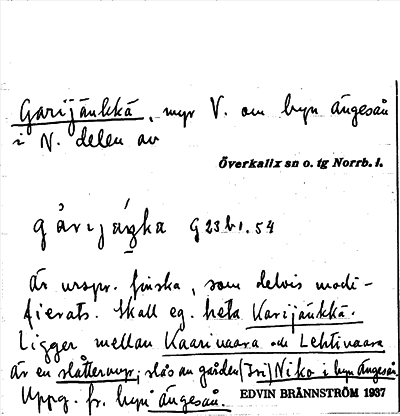 Garijänkkä, myr V. om byn Ängesån
i N. delen av
Överkalix sn o. tg Norrb. l.
gárijáŋka G 23 b 1. 54
är urspr. finska, som delvis modi-
fierats. Skall eg. heta Karijänkkä.
Ligger mellan Kaarivaara och Lehtivaara
är en slåttermyr; slås av gården (Fri) Niko i byn Ängesån.
Uppg. fr. byn Ängesån.
EDVIN BRÄNNSTRÖM 1937